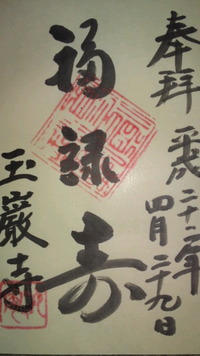 奉拝 平成二十二年
四月二十九日
福禄寿
玉巖寺